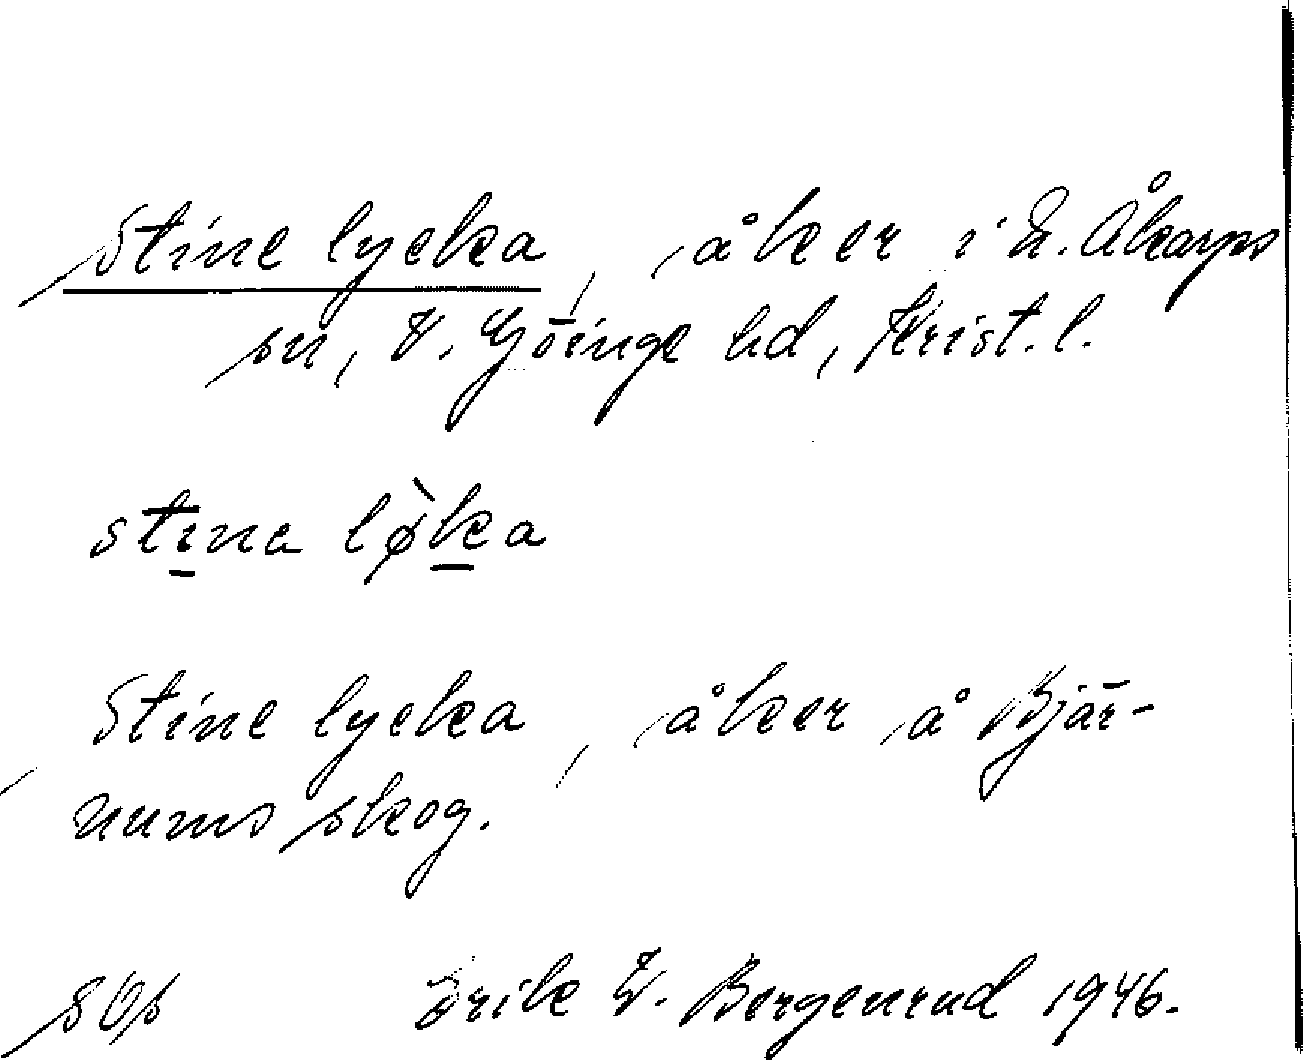 Stine lycka, åker i N. Åkarps
sn, V. Göinge hd, Krist. l.
stina lø̀ka
Stine lycka, åker å Bjär-
nums skog.
Erik W. Bergenrud 1946.